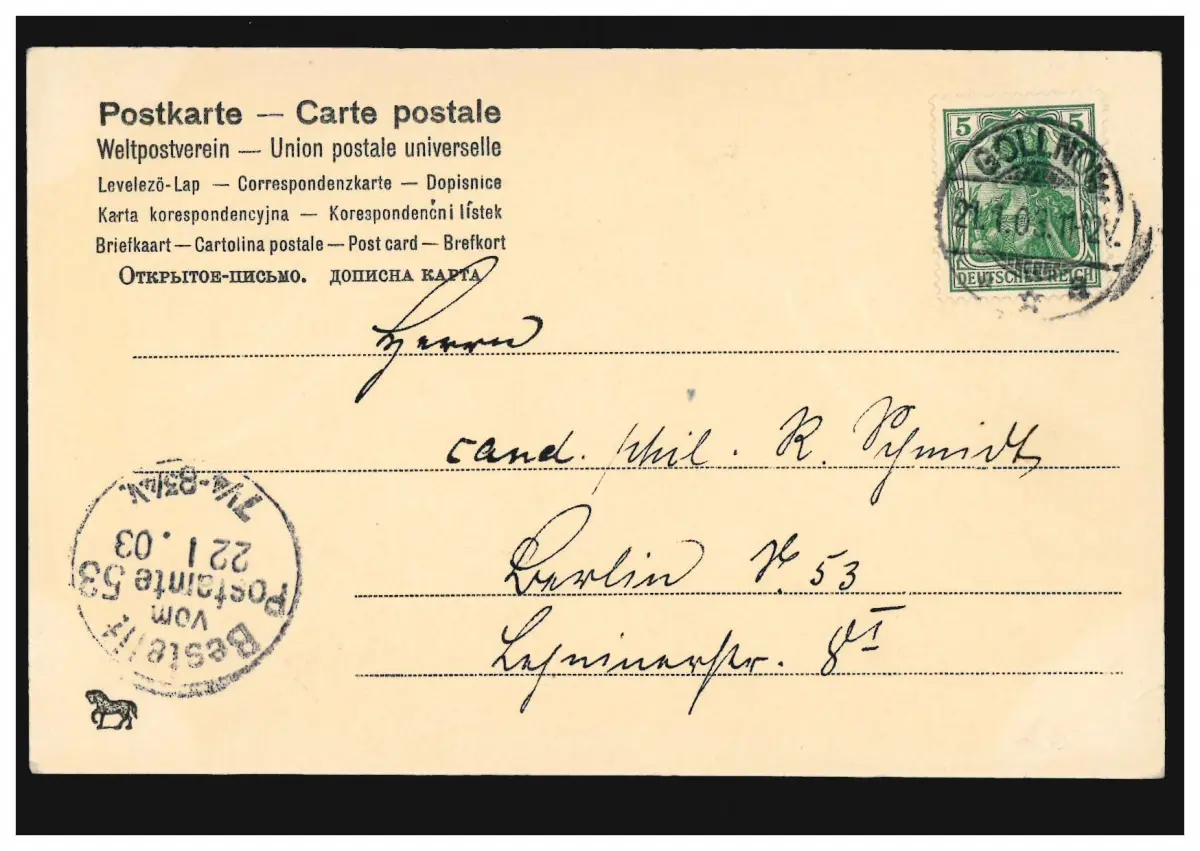 Postkarte — Carte postale
Weltpostverein — Union postale universelle
Levelező-Lap — Correspondenzkarte — Dopisnice
Karta korespondencyjna — Korespondenční lístek
Briefkaart — Cartolina postale — Post card — Brefkort
Открытое-письмо. дописна карта
5 5
GOLLNOW
21.1.03.11-12V.
DEUTSCHES REICH
* a
Herrn
cand. phil. R. Schmidt
Berlin S. 53
Lehninerstr. 8 I
Bestellt
vom
Postamte 53
22 1. 03
7¼-8¾V.